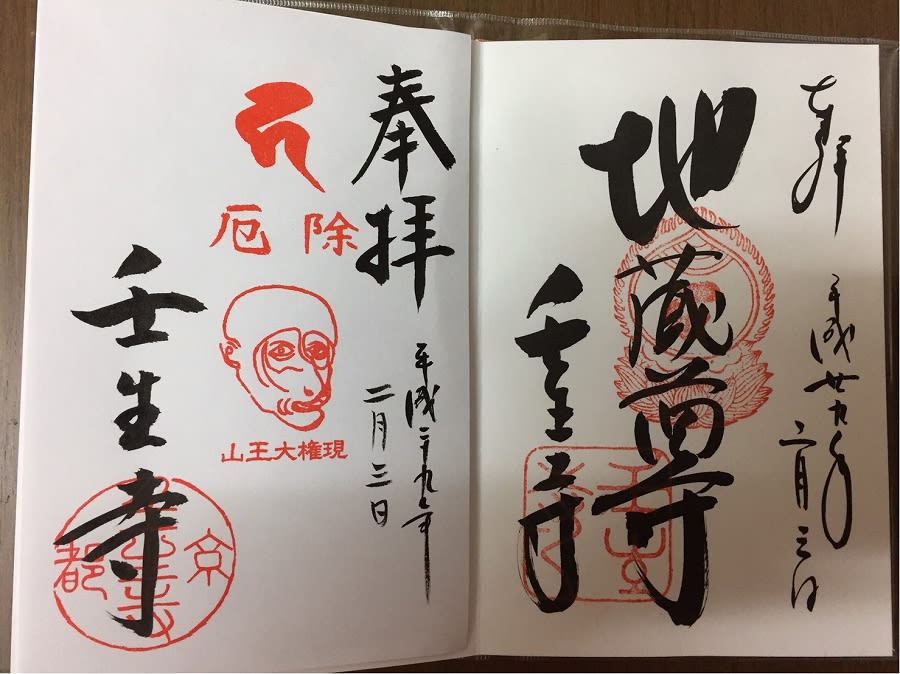 奉拝
平成廿九年
二月三日
地蔵尊
壬生寺
奉拝
平成二十九年
二月三日
厄除
山王大権現
壬生寺
京都